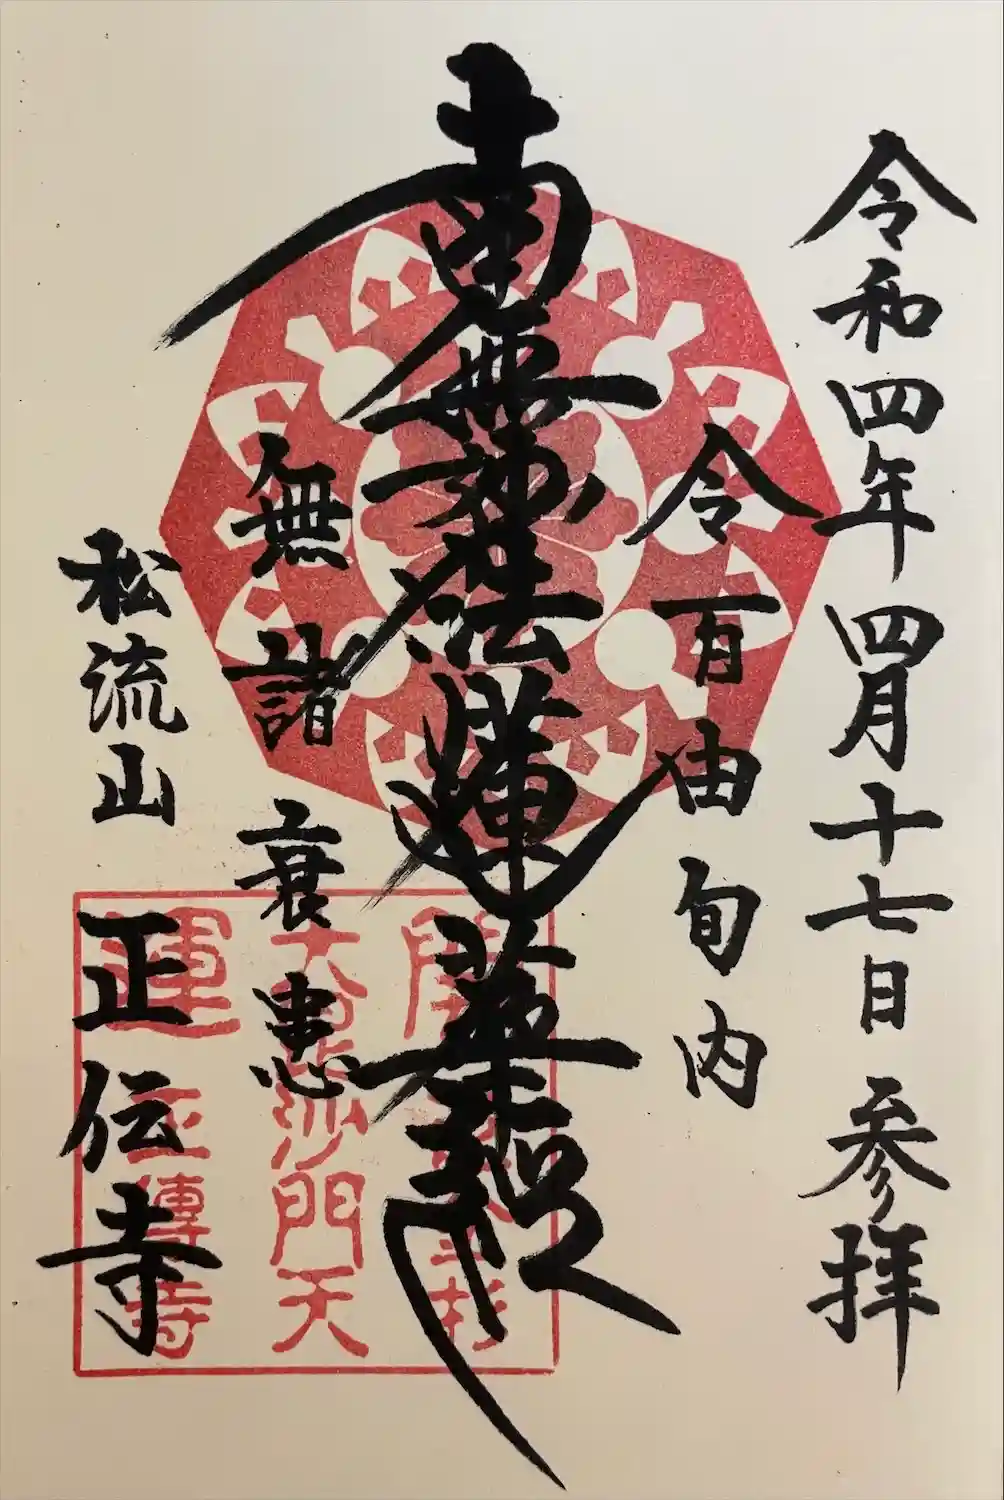 令和四年四月十七日 参拝
令百由旬内
南無妙法蓮華経
無諸衰患
松流山
正伝寺
開運
大毘沙門天
正傳寺